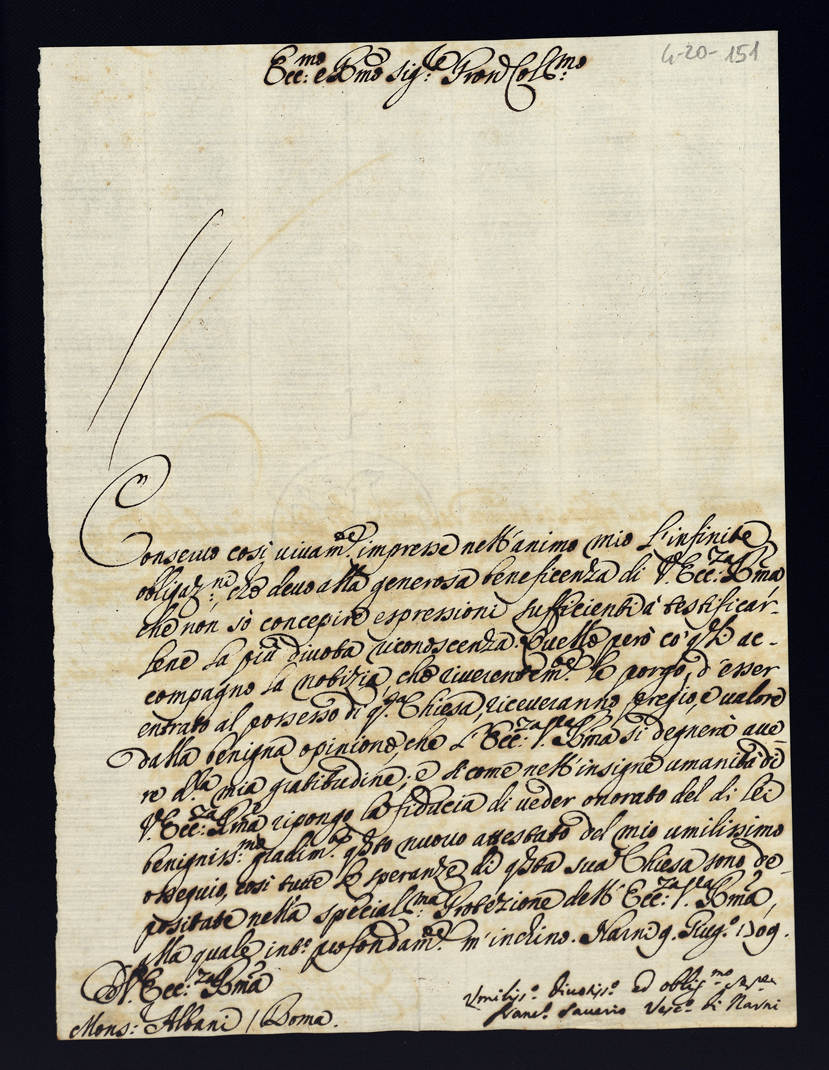 4-20-151
Ecc:mo e Rmo Sig:re Pron Col:mo
Conservo così vivam:te impresse nell'animo mio l'infinite
obligaz:ni, che devo alla generosa beneficenza di V: Ecc:za Rma
che non sò concepire espressioni sufficienti à testificar-
lene la più divota riconoscenza. Quelle però cò q:li ac-
compagno la notizia, che riverentem:te le porgo, d'esser
entrato al possesso di q:ta Chiesa, riceveranno pregio, e valore
dalla benigna opinione, che l'Ecc:za V:ra Rma si degnerà ave-
re d:lla mia gratitudine; e sicome nell'insigne umanità di
V: Ecc:za Rma ripongo la fidacia di veder onorato del di lei
benigniss:mo gradim:to q:sto nuovo attestato del mio umilissimo
ossequio, così tutte le speranze di q:sta sua Chiesa sono de-
positate nella special:ma Protezione dell'Ecc:za V:ra Rma,
alla quale int:o profondam:te m'inchino. Narni 9. Giug:o 1709.
D V: Ecc:za Rma
Mons: Albani / Roma.
Umiliss:o Divotiss:o ed oblig:mo
Franc:o Saverio Vesc:o di Narni